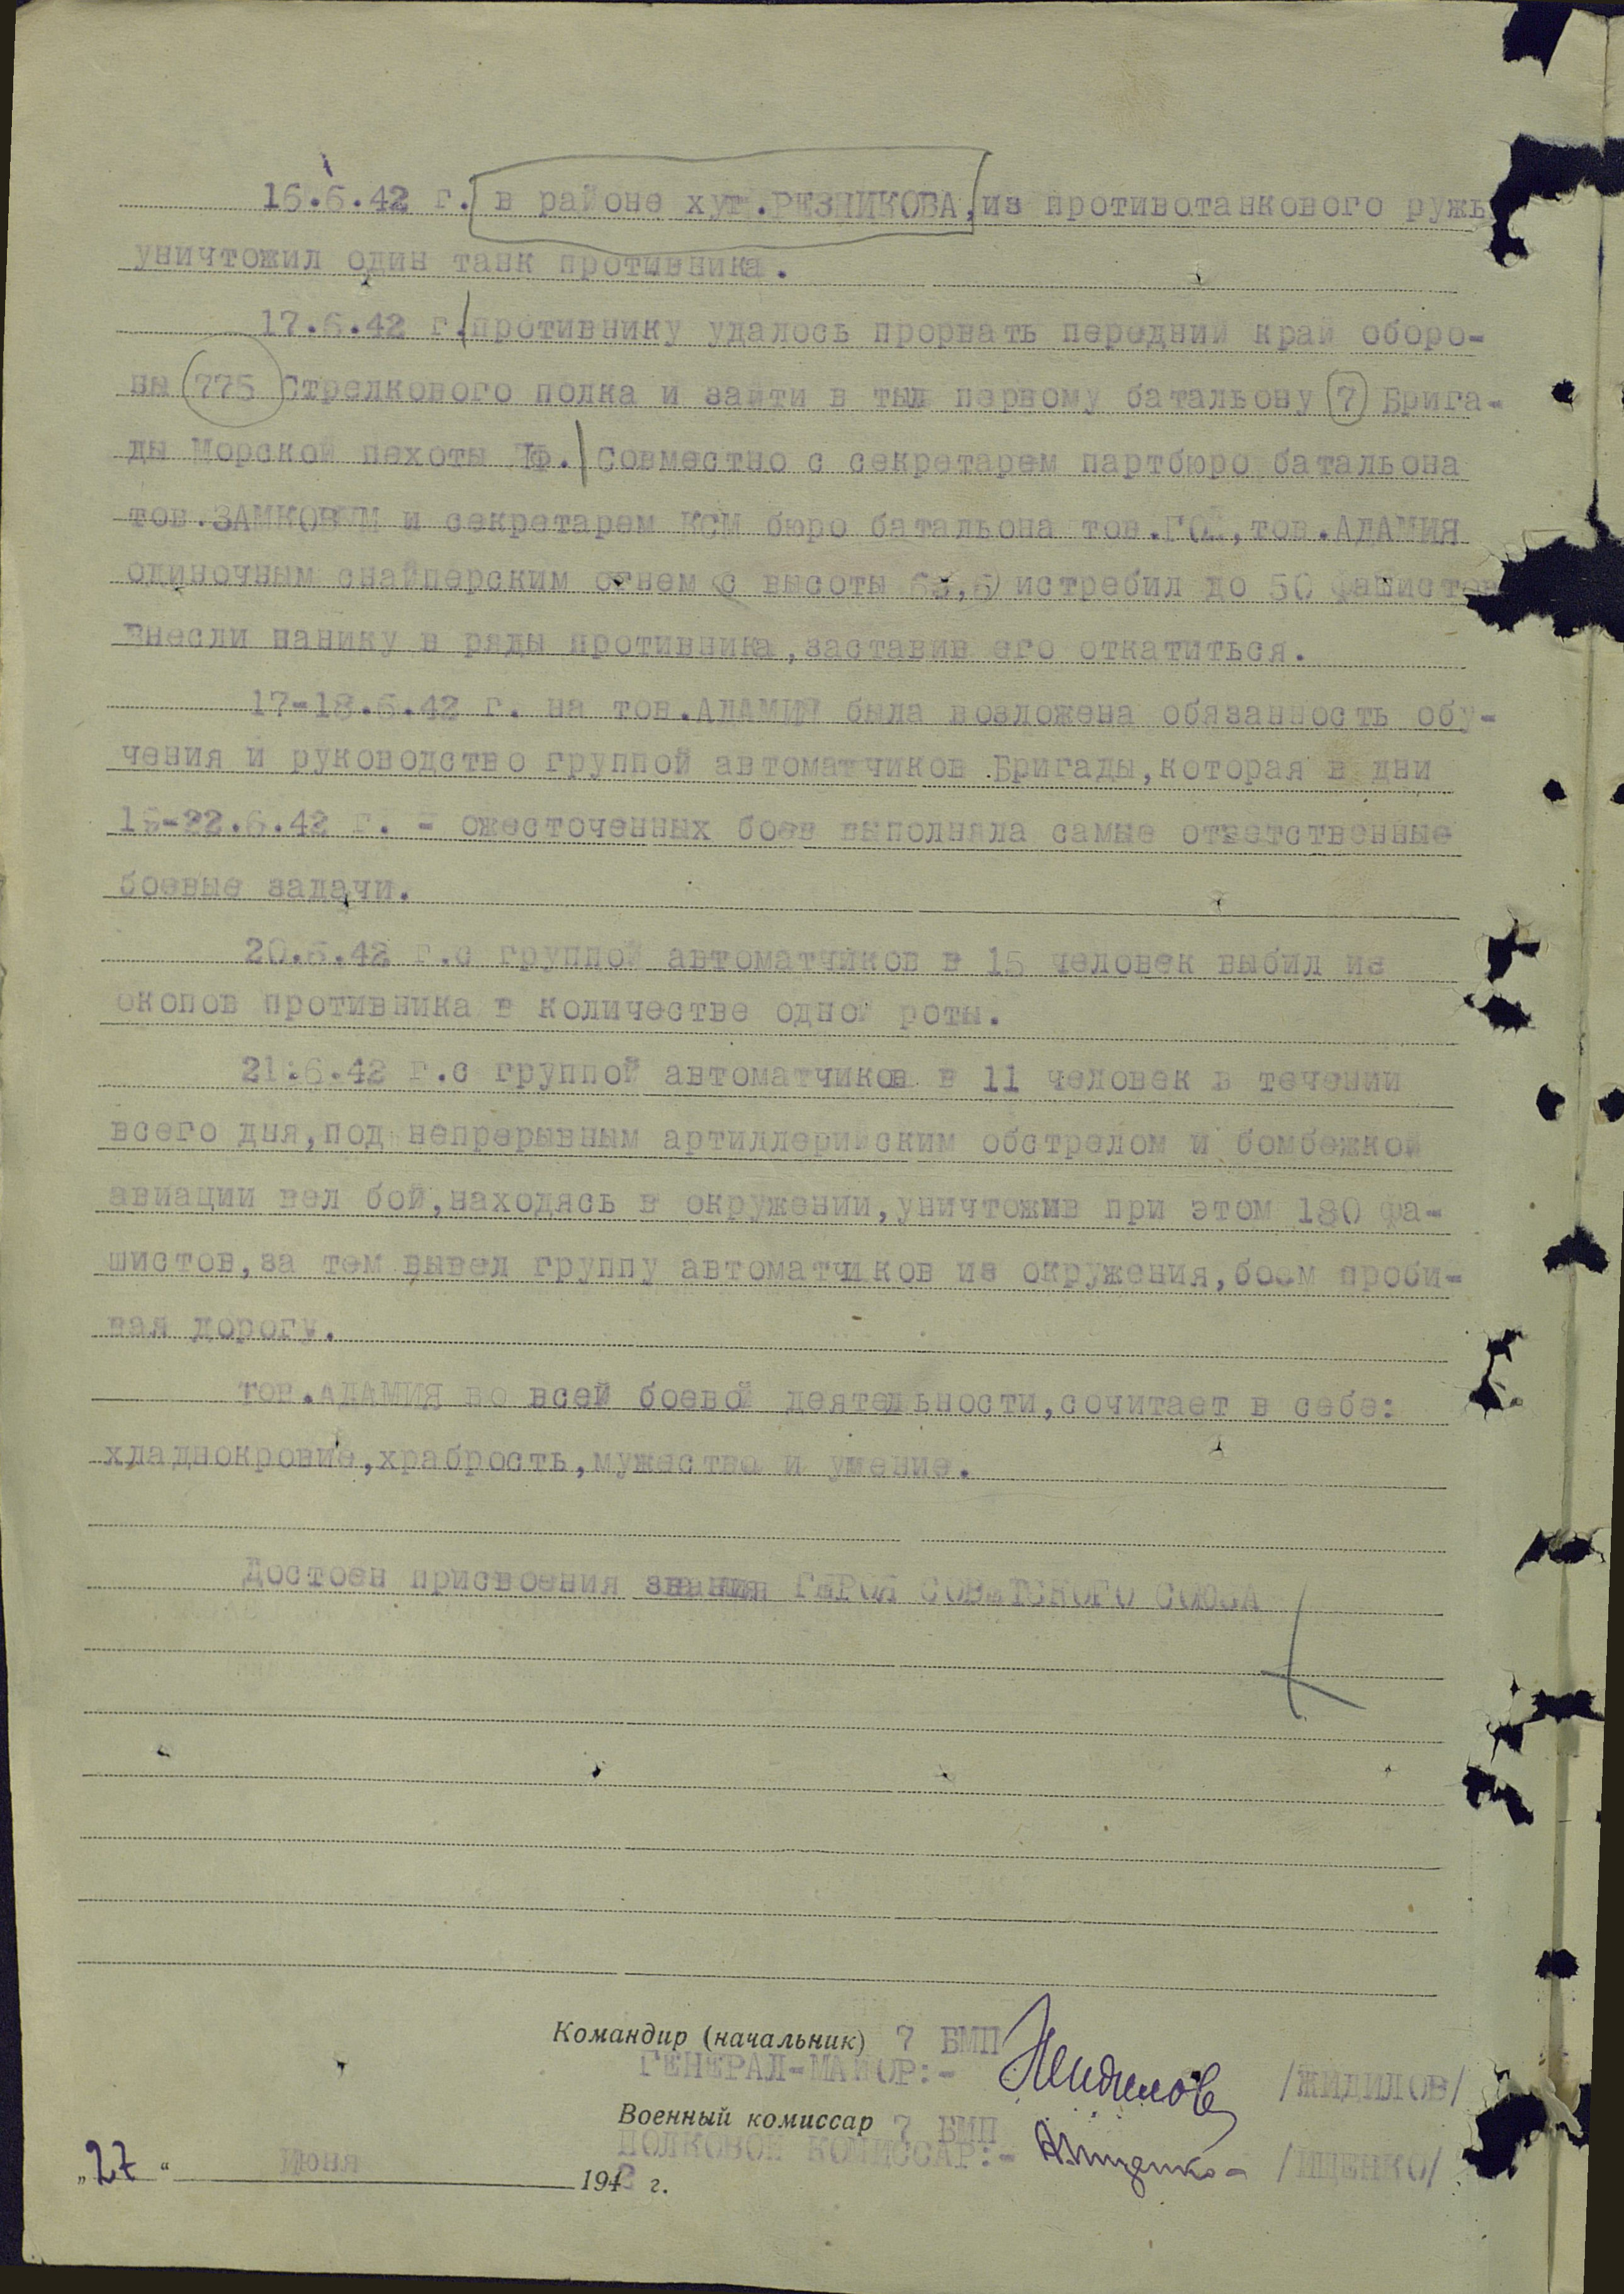 16.6.42 г. в районе хут.РЕЗНИКОВА,из противотанкового ружь
уничтожил один танк противника.
17.6.42 г.противнику удалось прорвать передний край оборо-
ны 775 Стрелкового полка и зайти в тыл первому батальону 7 Брига-
ды Морской пехоты ЧФ. Совместно с секретарем партбюро батальона
тов.ЗАМКОВЫМ и секретарем КСМ бюро батальона тов. тов.АДАМИЯ
одиночным снайперским огнем с высоты истребил до 50 фашистов
внесли панику в ряды противника,заставив его откатиться.
17-18.6.42 г. на тов.АДАМИЯ была возложена обязанность обу-
чения и руководство группой автоматчиков Бригады,которая в дни
-22.6.42 г. - ожесточенных боев выполняла самые ответственные
боевые задачи.
20.6.42 г.с группой автоматчиков в 15 человек выбил из
окопов противника в количестве одной роты.
21.6.42 г.с группой автоматчиков в 11 человек в течении
всего дня,под непрерывным артиллерийским обстрелом и бомбежкой
авиации вел бой,находясь в окружении,уничтожив при этом 180 фа-
шистов,за тем вывел группу автоматчиков из окружения,боем проби-
вая дорогу.
тов.АДАМИЯ во всей боевой деятельности,сочитает в себе:
хладнокровие,храбрость,мужество и умение.
Достоен присвоения звания ГЕРОЯ СОВЕТСКОГО СОЮЗА
Командир (начальник) 7 БМП
ГЕНЕРАЛ-МАЙОР:- Жидилов /ЖИДИЛОВ/
Военный комиссар 7 БМП
ПОЛКОВОЙ КОМИССАР:- Ищенко /ИЩЕНКО/
„27“ Июня 1942 г.